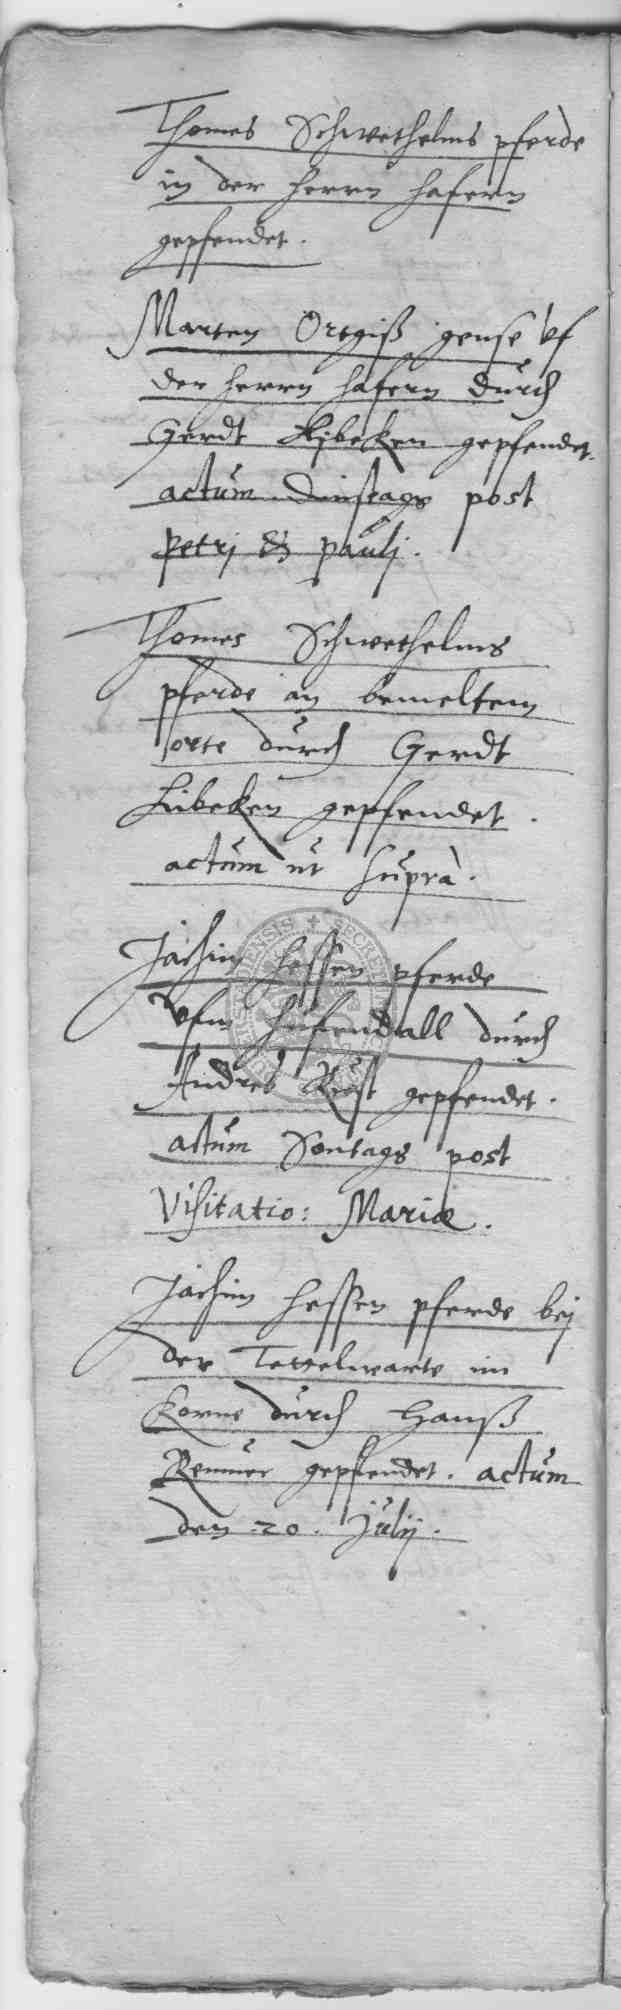 Thomes Schwethelms pferde
in der herrn hafern
gepfendet.
Marten Ortgiß gense vf
der herrn hafern durch
Gerdt Lübeken gepfendet.
actum dinstags post
Petrj & paulj.
Thomes Schwethelms
pferde an bemeltem
orte durch Gerdt
Lübeken gepfendet.
actum ut suprà.
Jachim Hessen pferde
vfm durch
Andres Rust gepfendet.
actum Sontags post
Visitatio: Mariæ.
Jachim Hessen pferde bej
der im
Korne durch Hanß
Remmer gepfendet. actum
den 20. Julij.